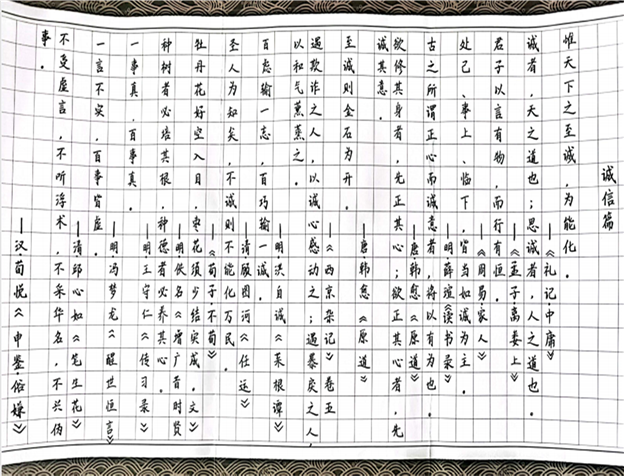 诚信篇
惟天下之至诚，为能化。
——《礼记·中庸》
诚者，天之道也；思诚者，人之道也。
——《孟子·离娄上》
君子以言有物，而行有恒。
——《周易·家人》
处己、事上、临下，皆当如诚为主。
——明·薛瑄《读书录》
古之所谓正心而诚意者，将以有为也。
——唐·韩愈《原道》
欲修其身者，先正其心；欲正其心者，先
诚其意。
——唐·韩愈《原道》
至诚则金石为开。
——《西京杂记》卷五
遇欺诈之人，以诚心感动之；遇暴戾之人，
以和气薰蒸之。
——明·洪自诚《菜根谭》
百虑输一忘，百巧输一诚。
——清·顾图河《任运》
圣人为知矣，不诚则不能化万民。
——《荀子·不苟》
牡丹花好空入目，枣花须少结实成。
——明·佚名《增广昔时贤
文》
种树者必培其根，种德者必养其心。
——明·王守仁《传习录》
一事真，百事真。
——明·冯梦龙《醒世恒言》
一言不实，百事皆虚。
——清·邱心如《笔生花》
不受虚言，不听浮术，不采华名，不兴伪
事。
——汉·荀悦《申鉴·俗嫌》